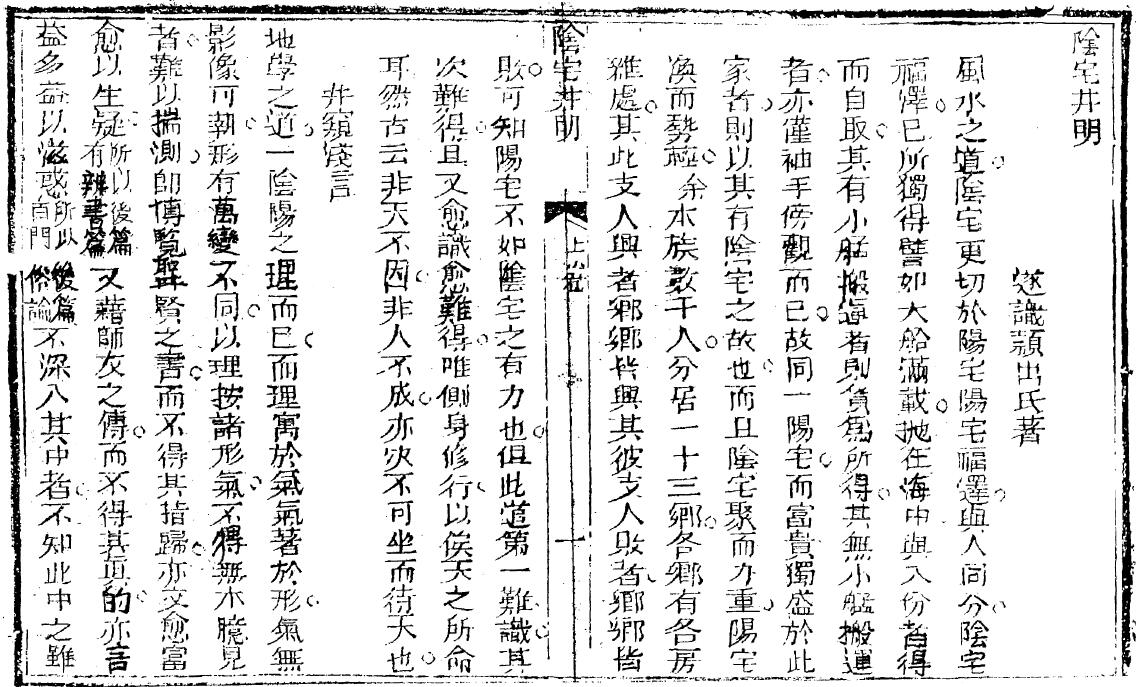 陰宅井明
遂識穎出氏著
風水之道陰宅更切於陽宅陽宅福澤與人同分陰宅
福澤已所獨得譬如大船滿載拋在海中與入份者得
而自取其有小艋搬運者則貨為所得其無小艋搬運
者亦僅袖手傍觀而已故同一陽宅而富貴獨盛於此
家者則以其有陰宅之故也而且陰宅聚而力重陽宅
渙而勢極余水族數千人分居一十三鄉各鄉有各房
雜處其此支人興者鄉鄉皆興其彼支人敗者鄉鄉皆
陰宅井明
上
一
敗可知陽宅不如陰宅之有力也但此道第一難識其
次難得且又愈識愈難得唯側身修行以俟天之所命
耳然古云非天不因非人不成亦決不可坐而待天也
井窺淺言
地學之道一陰陽之理而已而理寓於氣氣著於形氣無
影像可執形有萬變不同以理按諸形氣不得無木曉見
者難以揣測即博覧聖賢之書而不得其指歸亦文愈富
愈以生疑所以後篇有辨書篇又藉師友之傳而不得其真的亦言
益多益以滋惑所以後篇有門俗論不深入其中者不知此中之難